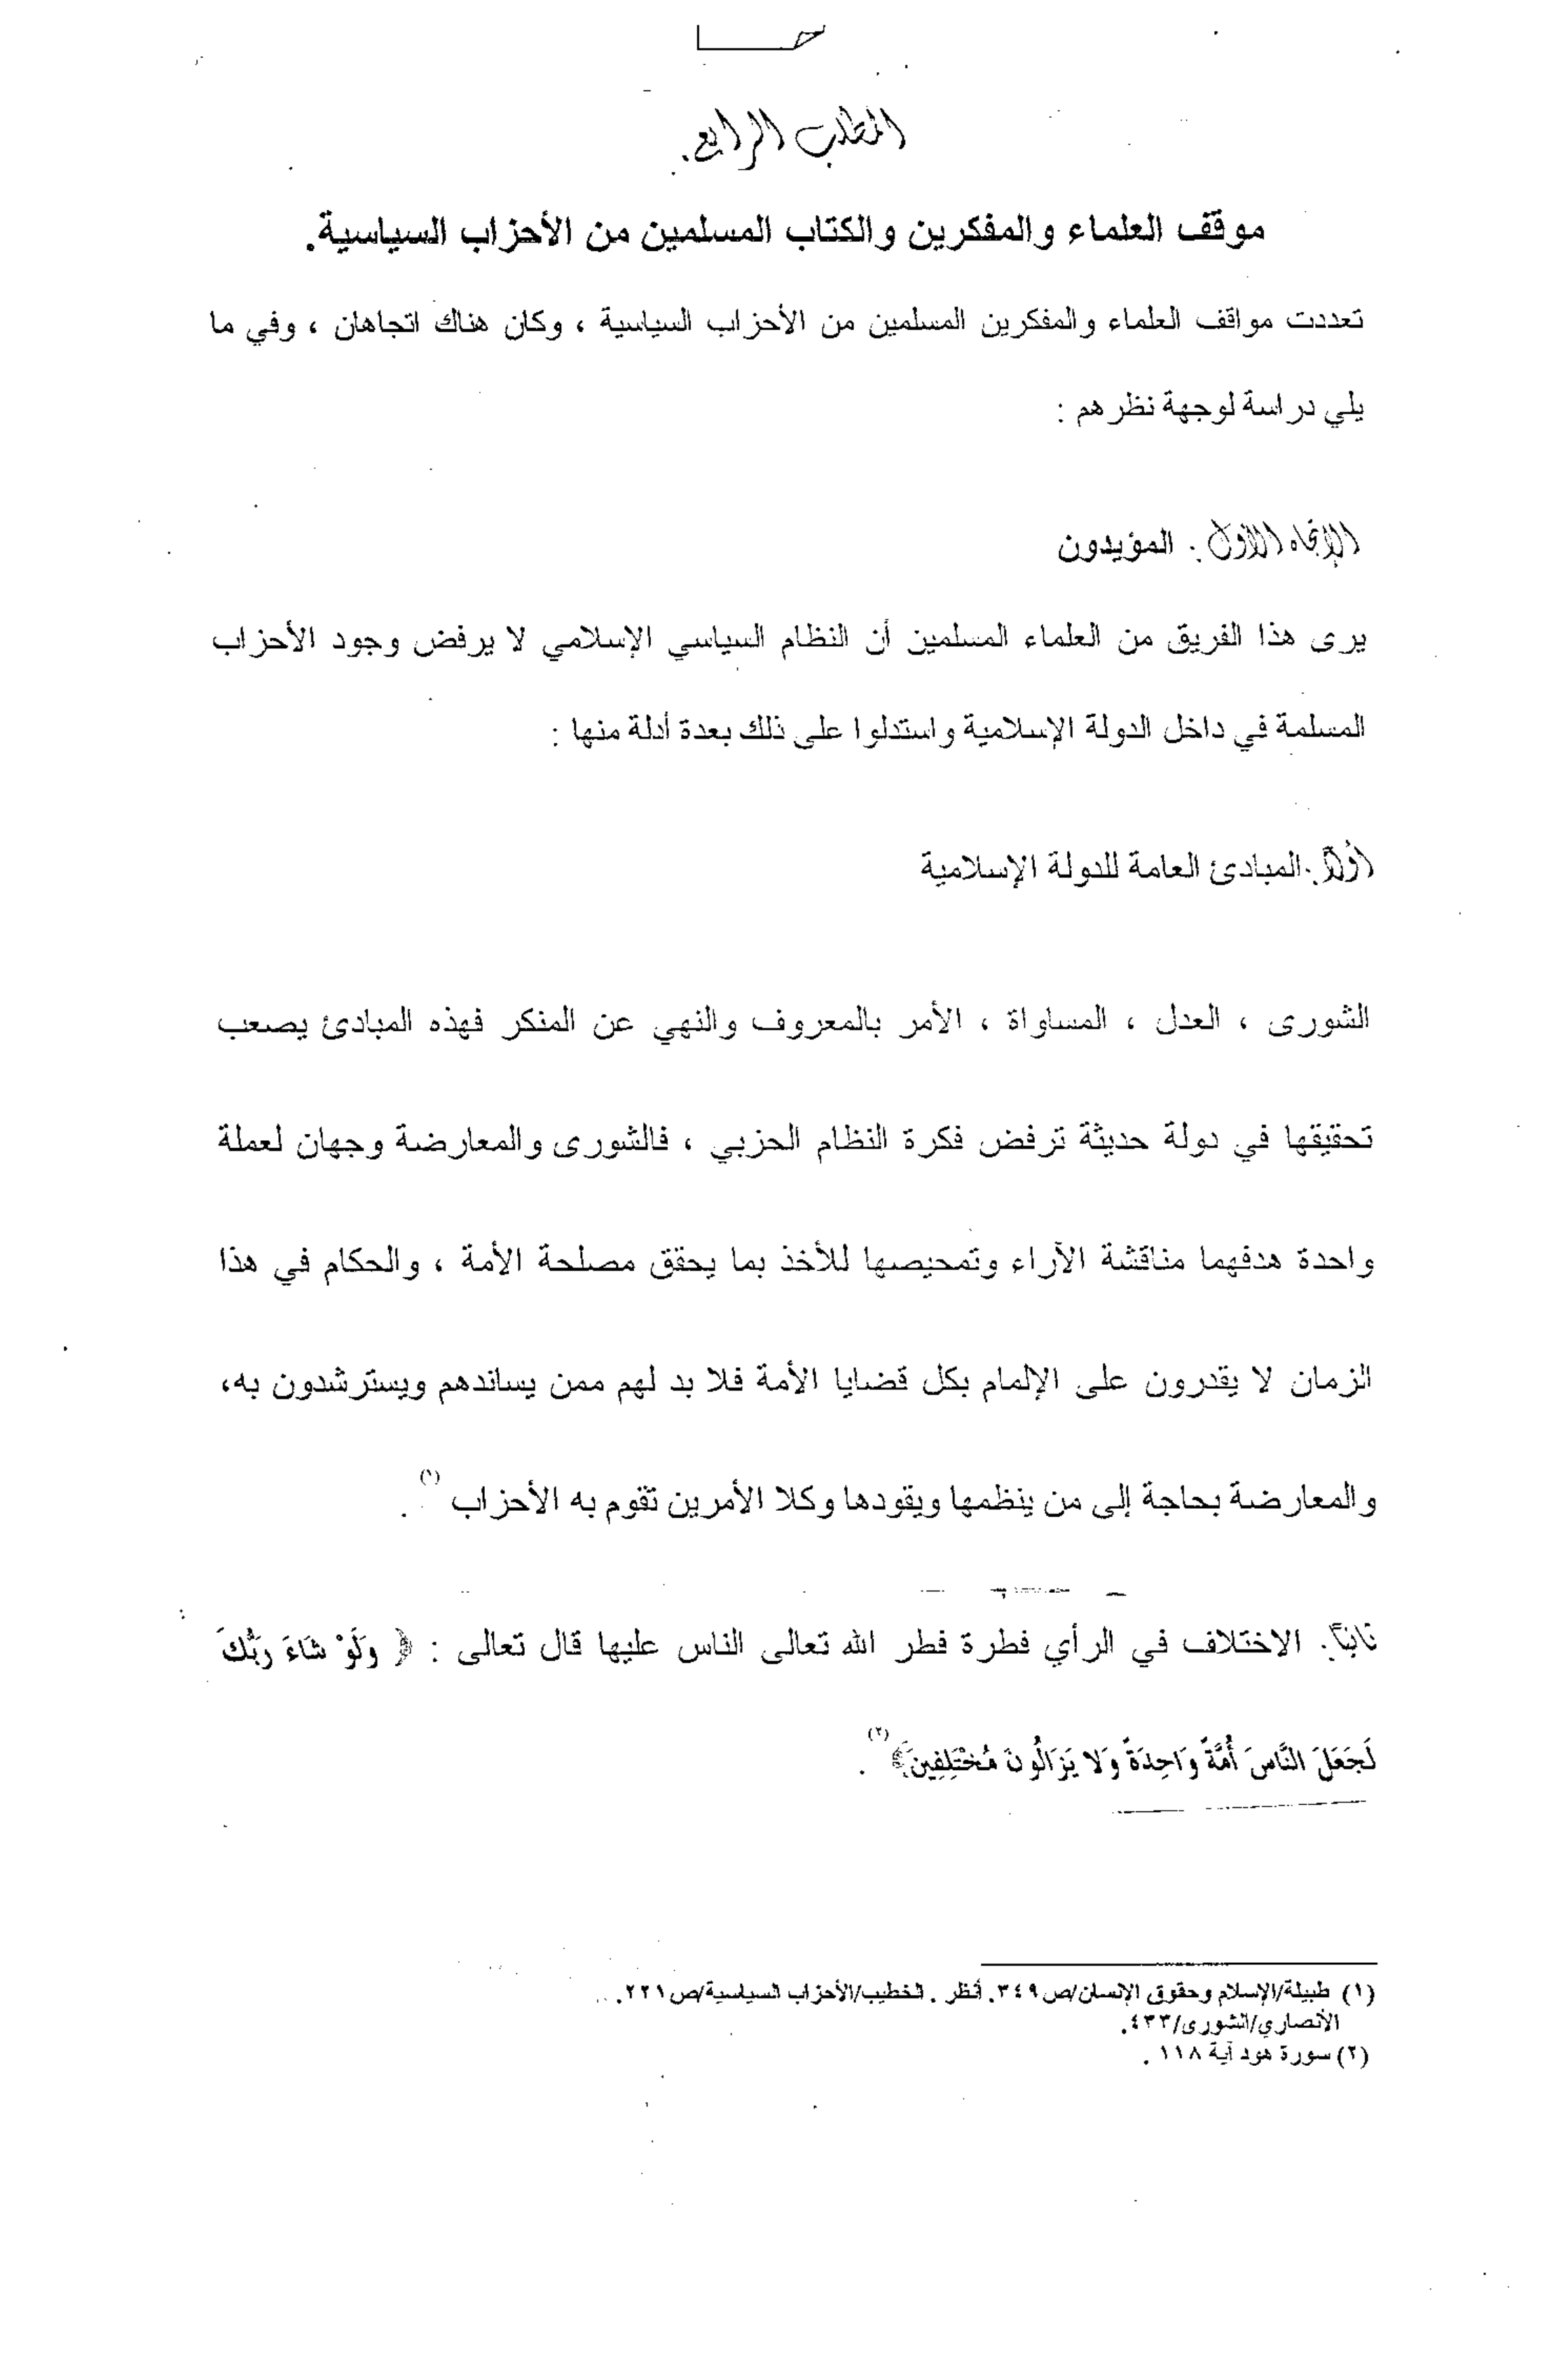 المطلب الرابع.
موقف العلماء والمفكرين والكتاب المسلمين من الأحزاب السياسية.
تعددت مواقف العلماء والمفكرين المسلمين من الأحزاب السياسية ، وكان هناك اتجاهان ، وفي ما
يلي دراسة لوجهة نظرهم :
الإتجاه الأول : المؤيدون
يرى هذا الفريق من العلماء المسلمين أن النظام السياسي الإسلامي لا يرفض وجود الأحزاب
المسلمة في داخل الدولة الإسلامية واستدلوا على ذلك بعدة أدلة منها :
أولاً: المبادئ العامة للدولة الإسلامية
الشورى ، العدل ، المساواة ، الأمر بالمعروف والنهي عن المنكر فهذه المبادئ يصعب
تحقيقها في دولة حديثة ترفض فكرة النظام الحزبي ، فالشورى والمعارضة وجهان لعملة
واحدة هدفهما مناقشة الآراء وتمحيصها للأخذ بما يحقق مصلحة الأمة ، والحكام في هذا
الزمان لا يقدرون على الإلمام بكل قضايا الأمة فلا بد لهم ممن يساندهم ويسترشدون به،
والمعارضة بحاجة إلى من ينظمها ويقودها وكلا الأمرين تقوم به الأحزاب (١) .
ثانياً: الاختلاف في الرأي فطرة فطر الله تعالى الناس عليها قال تعالى : ﴿ وَلَوْ شَاءَ رَبُّكَ
لَجَعَلَ النَّاسَ أُمَّةً وَاحِدَةً وَلا يَزَالُونَ مُخْتَلِفِينَ﴾(٢) .
(١) طبيلة/الإسلام وحقوق الإنسان/ص٣٤٩. أنظر . الخطيب/الأحزاب السياسية/ص٢٢١.
الأنصاري/الشورى/٤٣٣.
(٢) سورة هود آية ١١٨ .